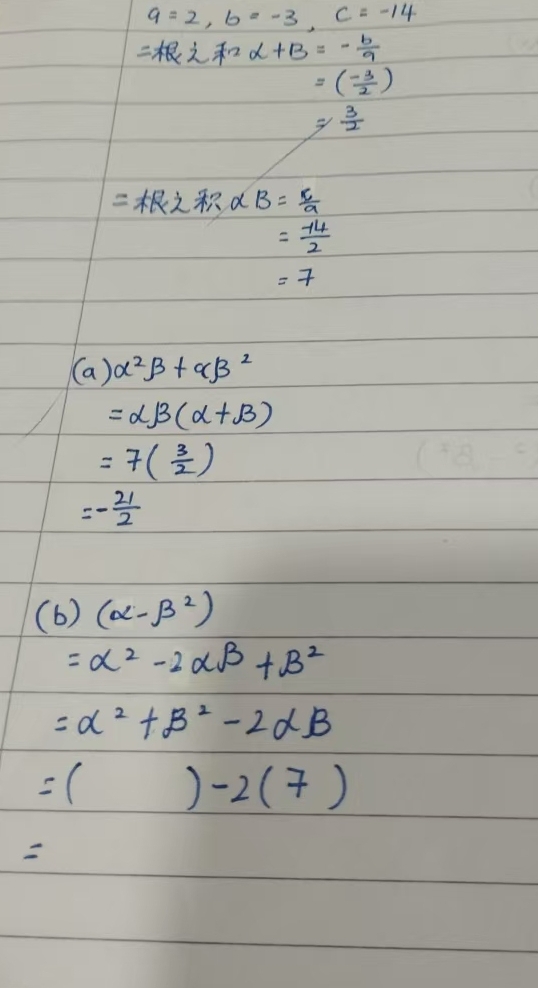 a = 2, b = -3, C = -14
= 根之和 α+B = - b/a
= (-3/2)
= 3/2
= 根之积 αB = c/a
= -14/2
= 7
(a) α²β + αβ²
= αβ(α+β)
= 7(3/2)
= -21/2
(b) (α-β²)
= α² - 2αβ + β²
= α² + β² - 2αβ
= (          ) - 2(7)
=